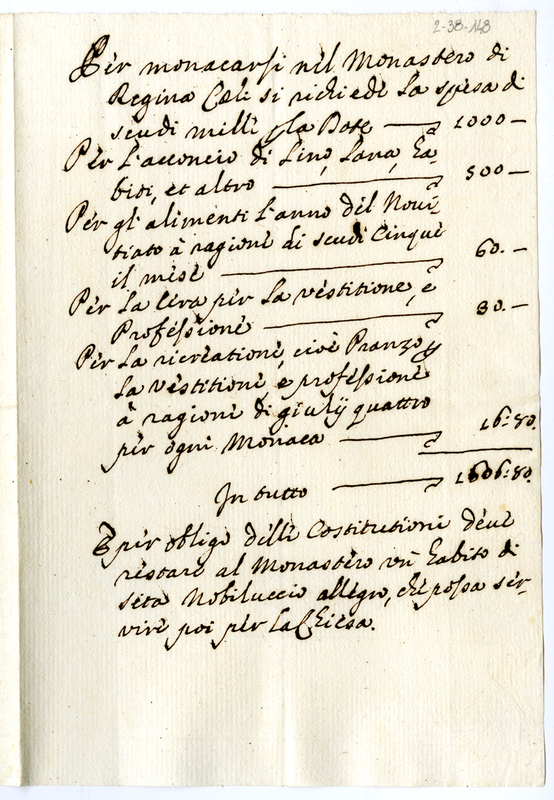 2-38-148
Per monacarsi nel Monastero di
Regina Cæli si richiede la spesa di
scudi mille p la Dote — 1000 —
Per l'acconcio di Lino, Lana, Ha-
biti, et altro — 500 —
Per gl'alimenti l'anno del Novi-
tiato à ragione di scudi Cinque
il mese — 60. —
Per la Cera per la vestitione, e
Professione — 30. —
Per la ricreatione, cioè Pranzo p
la vestitione, e professione
à ragione di giulij quattro
per ogni Monaca — 16:80.
In tutto — 1606:80.
E per obligo delle Costitutioni deve
restare al Monastero un habito di
seta Nobiluccio allegro, che possa ser-
vire poi per la Chiesa.